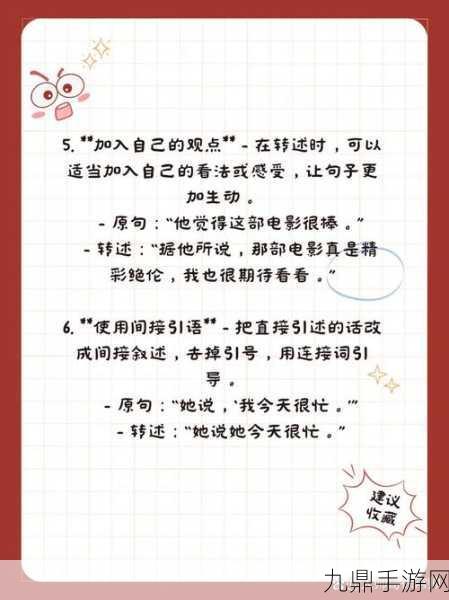 5. **加入自己的观点** - 在转述时，可以
适当加入自己的看法或感受，让句子更
加生动。
- 原句：“他觉得这部电影很棒。”
- 转述：“据他所说，那部电影真是精
彩绝伦，我也很期待看看。”
6. **使用间接引语** - 把直接引述的话改
成间接叙述，去掉引号，用连接词引
导。
- 原句：“她说，‘我今天很忙。’”
- 转述：“她说她今天很忙。”
建议
收藏
九鼎手游网